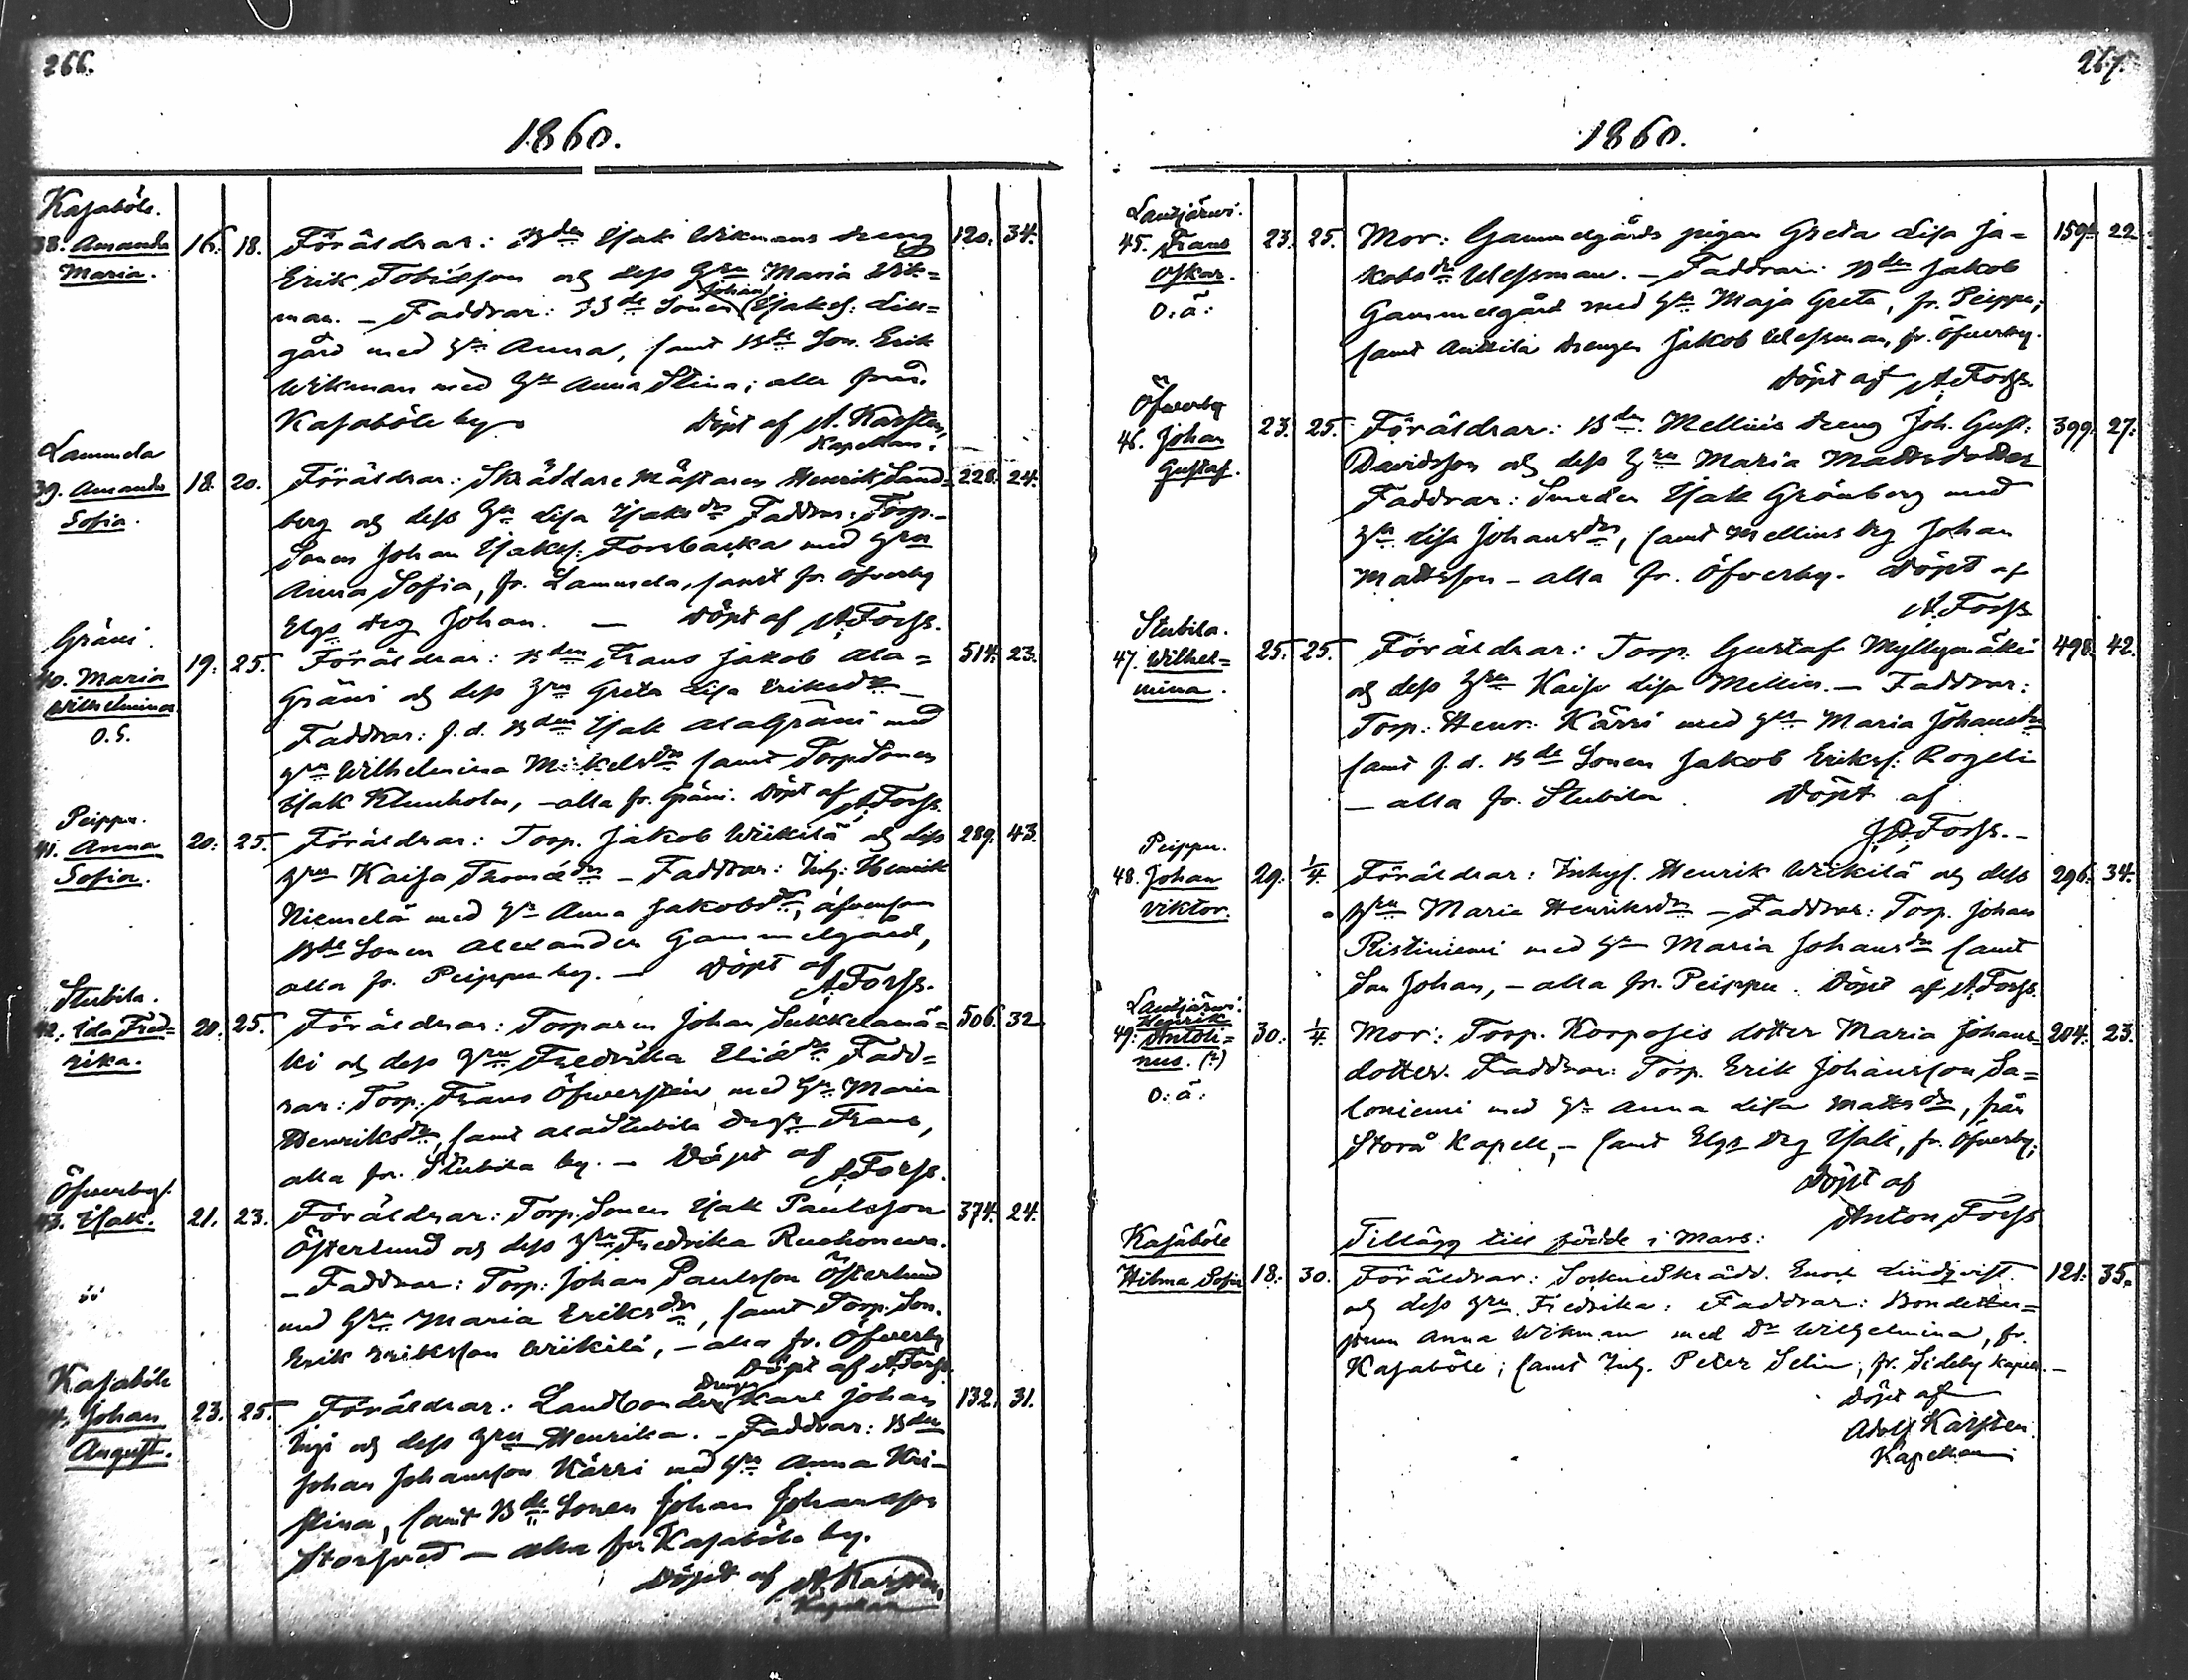 266.
1860.
Kasaböle.
38. Amanda
Maria.
16. 18.
Föräldrar: Bden Isak Wikmans dreng
Erik Tobiasson och dess Hru Maria Wik=
man. — Faddrar: Bde Sonen Johan Isaks. Lill=
gård med Hru Anna, samt Bde Son. Erik
Wikman med Hru Anna Stina; alla från
Kasaböle by.
Döpt af A. Karsten,
Kapellan.
120. 34.
Lammela
39. Amanda
Sofia.
18. 20.
Föräldrar: Skräddare Mästaren Henrik Sand=
berg och dess Hru Lisa Isaksdr Faddrar: Torp.
Sonen Johan Isaks. Forsbacka med Hru
Anna Sofia, fr. Lammela, samt fr. Öfverby
Elgs drg Johan. — Döpt af A. Forss.
228. 24.
Gräni.
40. Maria
Wilhelmina
19. 25.
Föräldrar: Bden Frans Jakob Ala=
Gräni och dess Hru Greta Lisa Eriksdr —
Faddrar: f.d. Bden Isak AlaGräni med
Hru Wilhelmina Mikelsdr samt TorpSonen
Isak Klemholm, — alla fr. Gräni. Döpt af A. Forss.
514. 23.
Peippu.
41. Anna
Sofia.
20. 25.
Föräldrar: Torp. Jakob Wiikilä och dess
Hru Kaisa Thomædr — Faddrar: Inh: Henrik
Niemelä med Hr Anna Jakobsdr, äfvensom
Bde Sonen Alexander Gammelgård,
alla fr. Peippu by. — Döpt af
A. Forss.
289. 43.
Stubila.
42. Ida Fred=
rika.
20. 25.
Föräldrar: Torparen Johan Sukkelamä=
ki och dess Hru Fredrika Eliædr Fadd=
rar: Torp. Frans Öfversten med Hr Maria
Henriksdr, samt AlaStubila Drgr Frans,
alla fr. Stubila by. — Döpt af
A. Forss.
506. 32
Öfverby.
43. Isak.
21. 23.
Föräldrar: Torp. Sonen Isak Paulsson
Österlund och dess Hru Fredrika
— Faddrar: Torp: Johan Paulsson Österlund
med Hru Maria Eriksdr, samt Torp. Son.
Erik Eriksson Wiikilä, — alla fr. Öfverby
Döpt af A. Forss.
374. 24.
Kasaböle
44. Johan
August.
23. 25.
Föräldrar: Landbonden Drengen Karl Johan
och dess Hru Henrika. — Faddrar: Bden
Johan Johansson Kärri med Hru Anna Kri=
stina, samt Bde Sonen Johan Johansson
Storsved — alla fr. Kasaböle by.
Döpt af A. Karsten,
Kapellan
132. 31.
267.
1860.
Lautjärvi.
45. Frans
Oskar.
O. ä:
23. 25.
Mor: Gammelgårds pigan Greta Lisa Ja=
kobsdr Wessman. — Faddrar: Bden Jakob
Gammelgård med Hr Maja Greta, fr. Peippu;
samt Anttila drengen Jakob Wessman, fr. Öfverby.
Döpt af A. Forss.
159. 22
Öfverby
46. Johan
Gustaf.
23. 25.
Föräldrar: Bden Mellins dreng Joh. Gust.
Davidsson och dess Hru Maria Mattsdotter
Faddrar: Smeden Isak Grönberg med
Hr Lisa Johansdr, samt Mellins drg Johan
Mattsson — alla fr. Öfverby. Döpt af
A. Forss
399. 27.
Stubila.
47. Wilhel=
mina.
25. 25.
Föräldrar: Torp. Gustaf Myllymäki
och dess Hru Kaisa Lisa Mellin. — Faddrar:
Torp: Henr. Kärri med Hru Maria Johansdr
samt f.d. Bde Sonen Jakob Eriks: Rogeli
— alla fr. Stubila. Döpt af
A. Forss. —
498. 42.
Peippu.
48. Johan
Viktor.
29. 1/4.
Föräldrar: Inhys. Henrik Wiikilä och dess
Hru Maria Henriksdr — Faddrar: Torp. Johan
Ristiniemi med Hr Maria Johansdr samt
Son Johan, — alla fr. Peippu. Döpt af A. Forss.
296. 34.
Lautjärvi.
Henrik
49. Antoli=
nus. (?)
O. ä:
30. 1/4
Mor: Torp. Korposis dotter Maria Johans=
dotter. Faddrar: Torp. Erik Johansson Sa=
loniemi med Hr Anna Lisa Mattsdr, från
Storå Kapell, — samt Elgs drg Isak, fr. Öfverby;
Döpt af
Anton Forss
204. 23.
Tillägg till födde i Mars:
Kasaböle
Hilma Sofia
18. 30.
Föräldrar: SockneSkrädd. Enok Lindqvist.
och dess Hru Fredrika: Faddrar:
Anna Wikman med Dr Wilhelmina, fr.
Kasaböle; samt Inh. Peter Selin, fr. Sideby Kapell. —
Döpt af
Adolf Karsten.
Kapellan
121. 35.